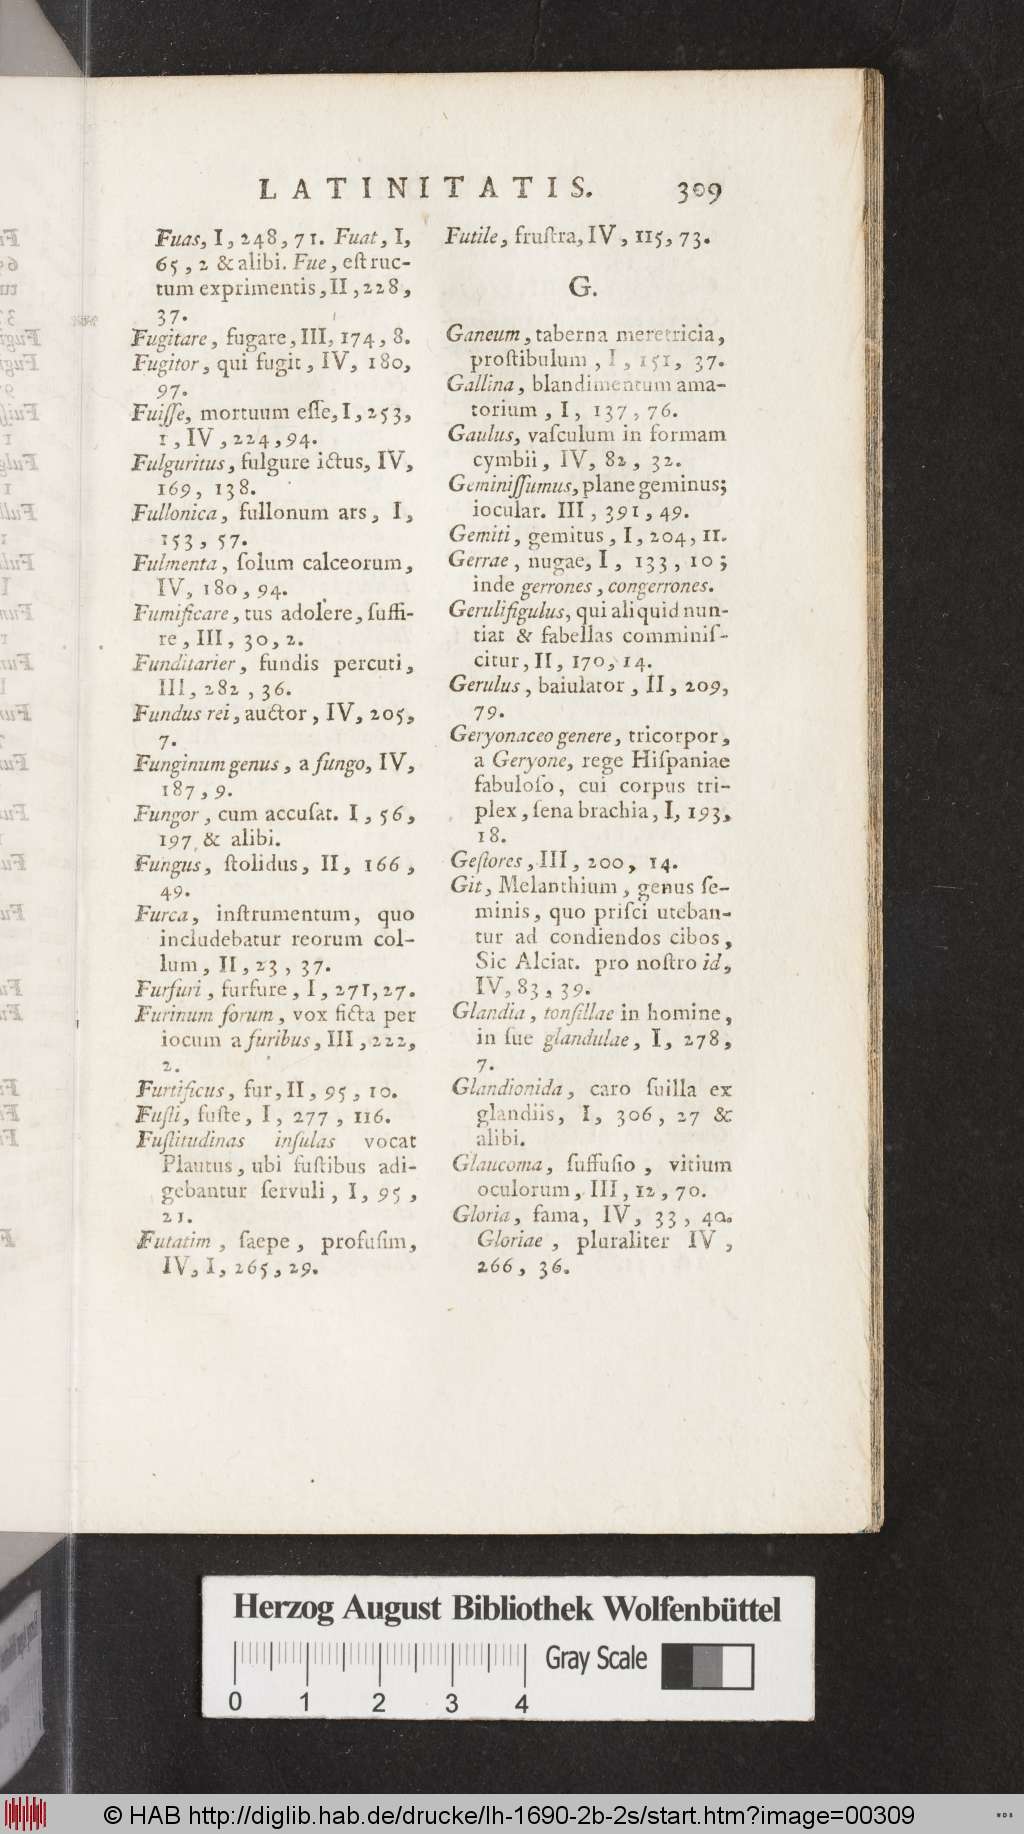 LATINITATIS. 309
Fuas, I, 248, 71. Fuat, I,
65, 2 & alibi. Fue, est ruc-
tum exprimentis, II, 228,
37.
Fugitare, fugare, III, 174, 8.
Fugitor, qui fugit, IV, 180,
97.
Fuiſſe, mortuum eſſe, I, 253,
1, IV, 224, 94.
Fulguritus, fulgure ictus, IV,
169, 138.
Fullonica, fullonum ars, I,
153, 57.
Fulmenta, ſolum calceorum,
IV, 180, 94.
Fumificare, tus adolere, ſuffi-
re, III, 30, 2.
Funditarier, fundis percuti,
III, 282, 36.
Fundus rei, auctor, IV, 205,
7.
Funginum genus, a fungo, IV,
187, 9.
Fungor, cum accuſat. I, 56,
197 & alibi.
Fungus, ſtolidus, II, 166,
49.
Furca, inſtrumentum, quo
includebatur reorum col-
lum, II, 23, 37.
Furfuri, furfure, I, 271, 27.
Furinum forum, vox ficta per
iocum a furibus, III, 222,
2.
Furtificus, fur, II, 95, 10.
Fuſti, fuſte, I, 277, 116.
Fuſtitudinas inſulas vocat
Plautus, ubi fuſtibus adi-
gebantur ſervuli, I, 95,
21.
Futatim, ſaepe, profuſim,
IV, I, 265, 29.
Futile, fruſtra, IV, 115, 73.
G.
Ganeum, taberna meretricia,
proſtibulum, I, 151, 37.
Gallina, blandimentum ama-
torium, I, 137, 76.
Gaulus, vaſculum in formam
cymbii, IV, 82, 32.
Geminiſſumus, plane geminus;
iocular. III, 391, 49.
Gemiti, gemitus, I, 204, 11.
Gerrae, nugae, I, 133, 10;
inde gerrones, congerrones.
Gerulifigulus, qui aliquid nun-
tiat & fabellas comminiſ-
citur, II, 170, 14.
Gerulus, baiulator, II, 209,
79.
Geryonaceo genere, tricorpor,
a Geryone, rege Hiſpaniae
fabuloſo, cui corpus tri-
plex, ſena brachia, I, 193,
18.
Geſtores, III, 200, 14.
Git, Melanthium, genus ſe-
minis, quo priſci uteban-
tur ad condiendos cibos,
Sic Alciat. pro noſtro id,
IV, 83, 39.
Glandia, tonſillae in homine,
in ſue glandulae, I, 278,
7.
Glandionida, caro ſuilla ex
glandiis, I, 306, 27 &
alibi.
Glaucoma, ſuffuſio, vitium
oculorum, III, 12, 70.
Gloria, fama, IV, 33, 40.
Gloriae, pluraliter IV,
266, 36.
Herzog August Bibliothek Wolfenbüttel
Gray Scale
0 1 2 3 4
© HAB http://diglib.hab.de/drucke/lh-1690-2b-2s/start.htm?image=00309